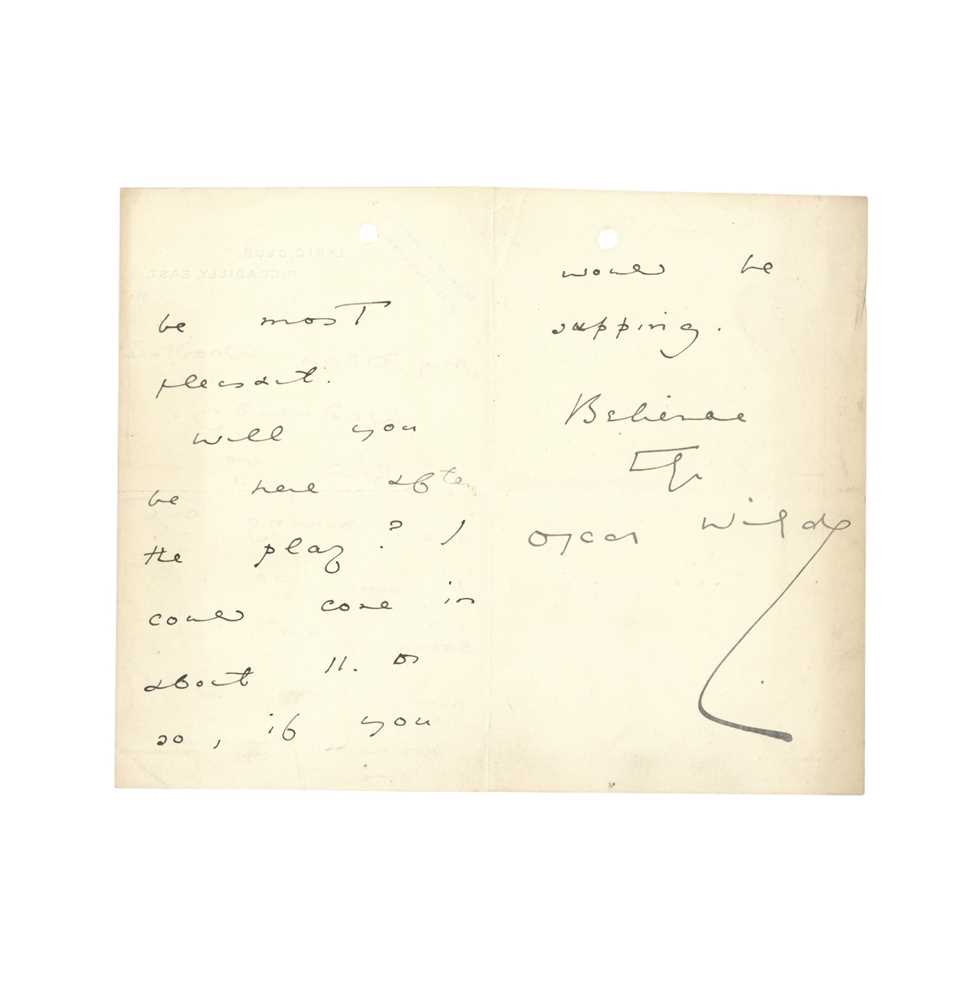 be most
pleasant.
Will you
be here after
the play? I
could come in
about 11. or
so, if you
would be
supping.
Believe me
Oscar Wilde